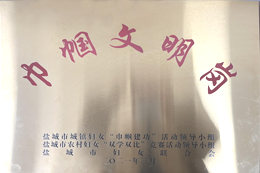 巾帼文明岗
盐城市城镇妇女“巾帼建功”活动领导小组
盐城市农村妇女“双学双比”竞赛活动领导小组
盐城市妇女联合会
二〇二一年 月